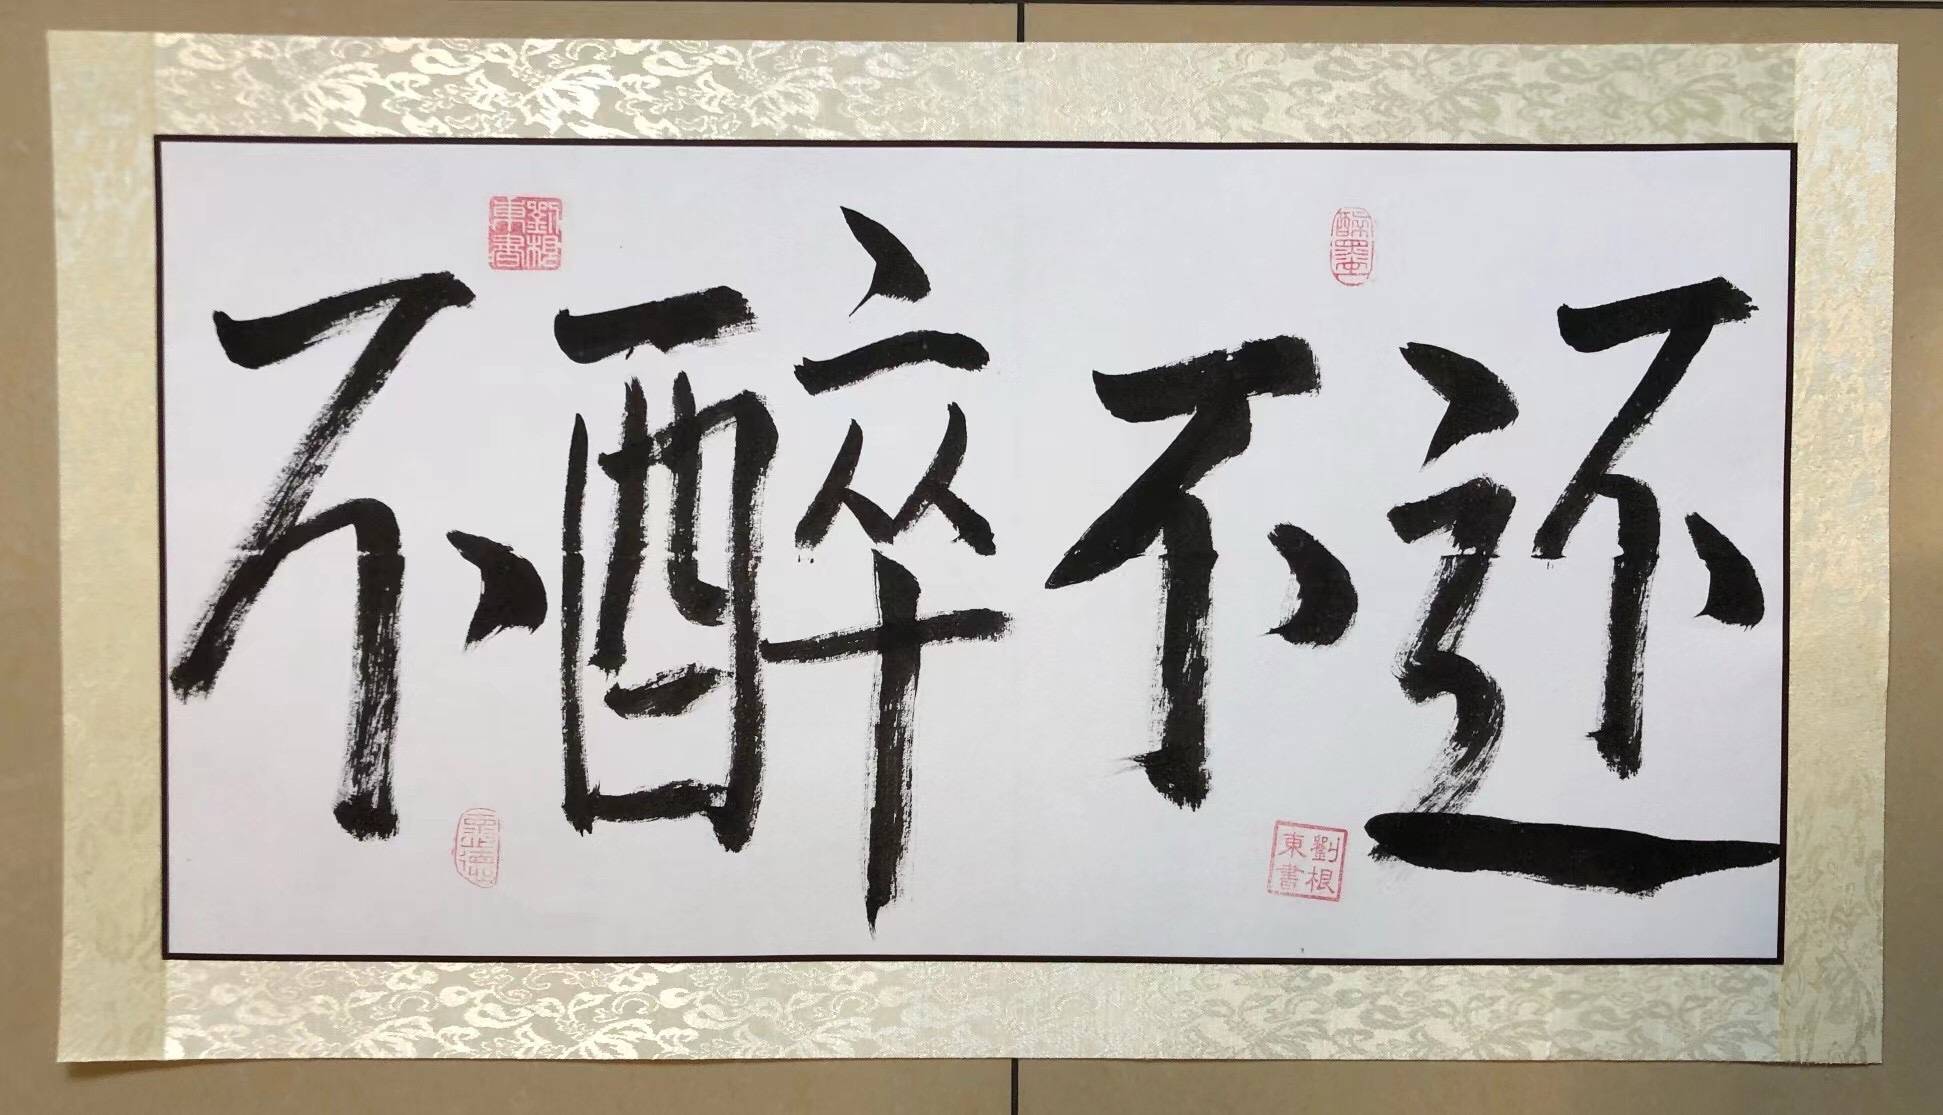 不醉不还
劉根東書
醉墨
劉根東書